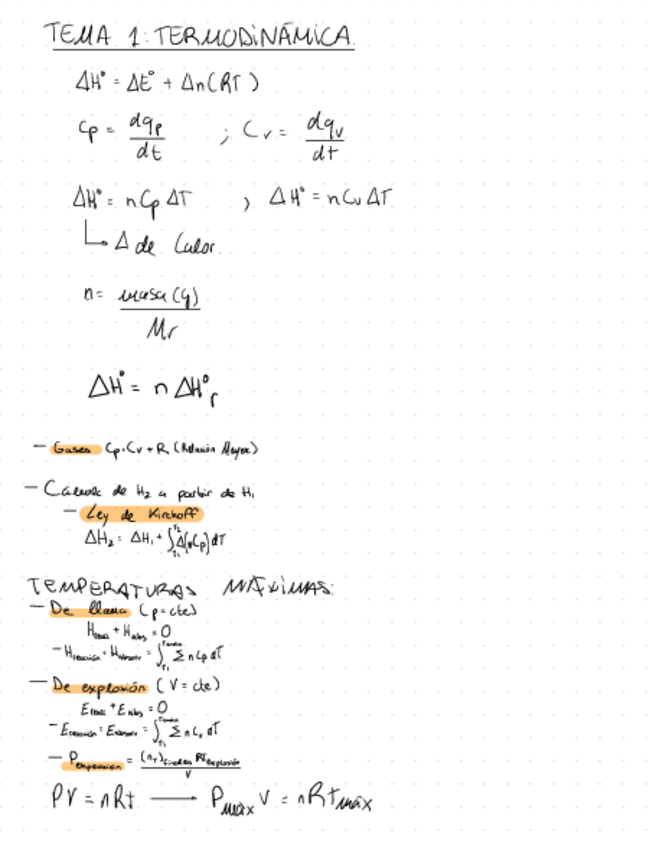 TEMA 1: TERMODINÁMICA
ΔH° = ΔE° + Δn(RT)
Cp = dqp/dt ; Cv = dqv/dt
ΔH° = nCpΔT , ΔH° = nCvΔT
↳ Δ de Calor.
n = masa (g)/Mr
ΔH° = n ΔH°r
— Gases Cp = Cv + R (Relación Mayer)
— Calculo de H₂ a partir de H₁
— Ley de Kirchoff
ΔH₂ = ΔH₁ + ∫T₁T₂ Δ(nCp)dT
TEMPERATURAS MÁXIMAS:
— De llama (p = cte)
H + Habs = 0
-Hreacción = Habsorv = ∫T₁ Σ n Cp dT
— De explosión (V = cte)
E + Eabs = 0
-Ereacción = Eabsorv = ∫T₁ Σ n Cv dT
— Pexplosión = (nT)finales RTexplosión/V
PV = nRt → Pmáx V = nRtmáx